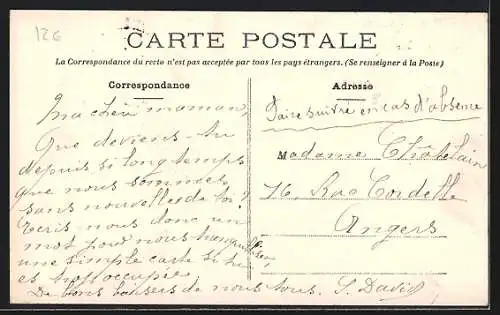 126
CARTE POSTALE
La Correspondance du recto n'est pas acceptée par tous les pays étrangers. (Se renseigner à la Poste)
Correspondance
Ma chère maman,
Que deviens-tu
depuis si longtemps
que nous sommes
sans nouvelles de toi?
Ecris nous donc un
mot pour nous tranquilliser,
une simple carte si tu
es trop occupée.
De bons baisers de nous tous. S. David
Adresse
Faire suivre en cas d'absence
Madame Châtelain
76, Rue Cordelle
Angers